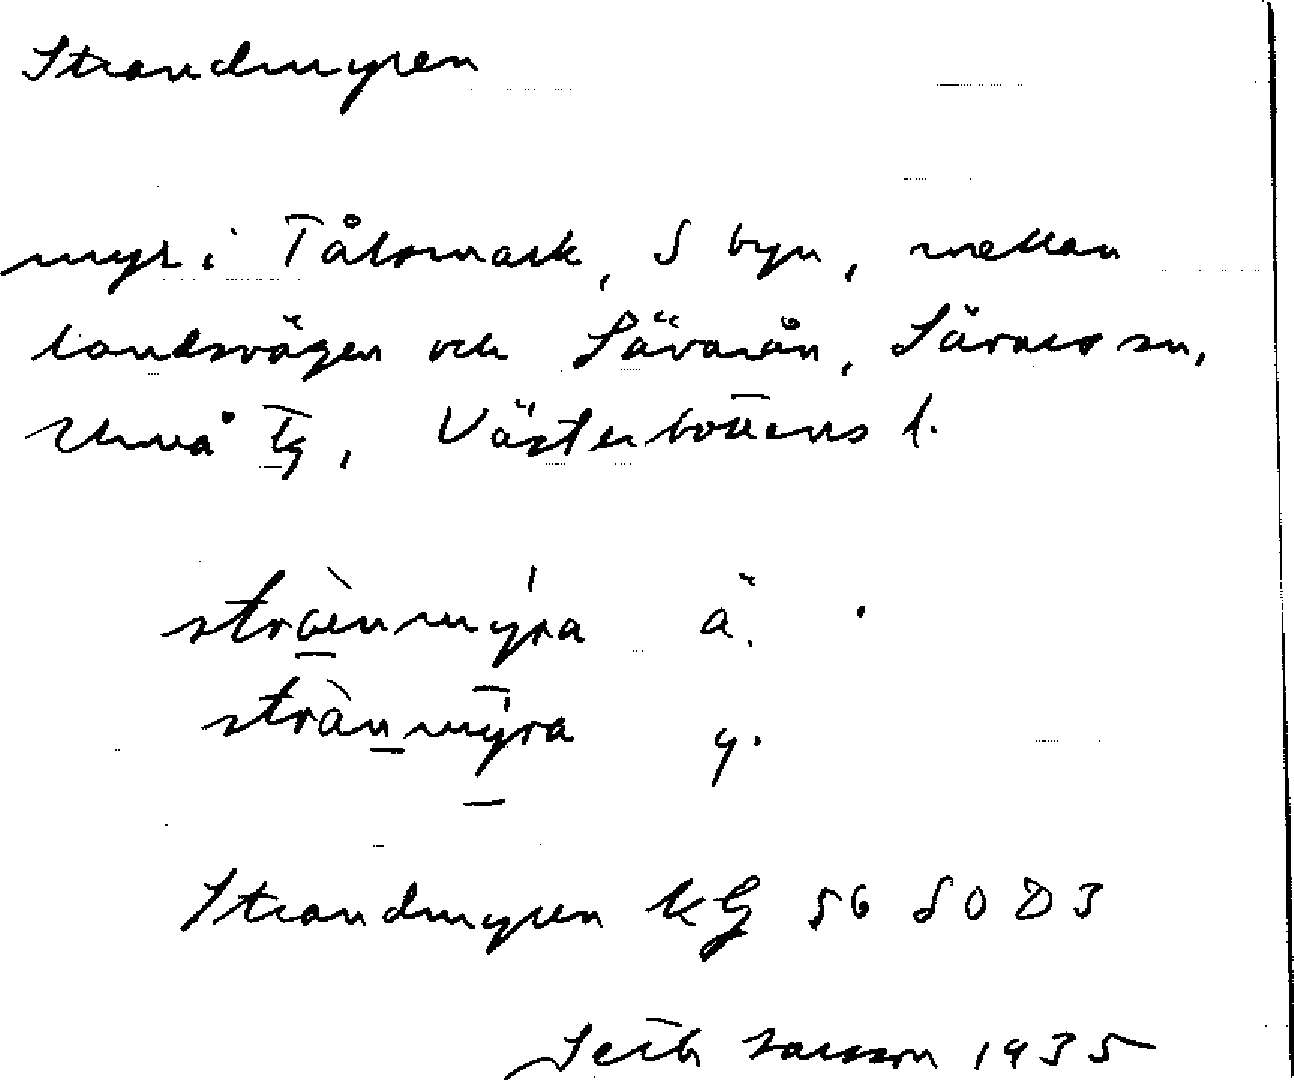 Strandmyren
myr i Tålsmark, S byn, mellan
landsvägen och Sävarån, Sävars sn,
Umeå Tg, Västerbottens l.
stràenmýra ä.
strànmýra y.
Strandmyren kG 56 SO D3
Seth Larsson 1935